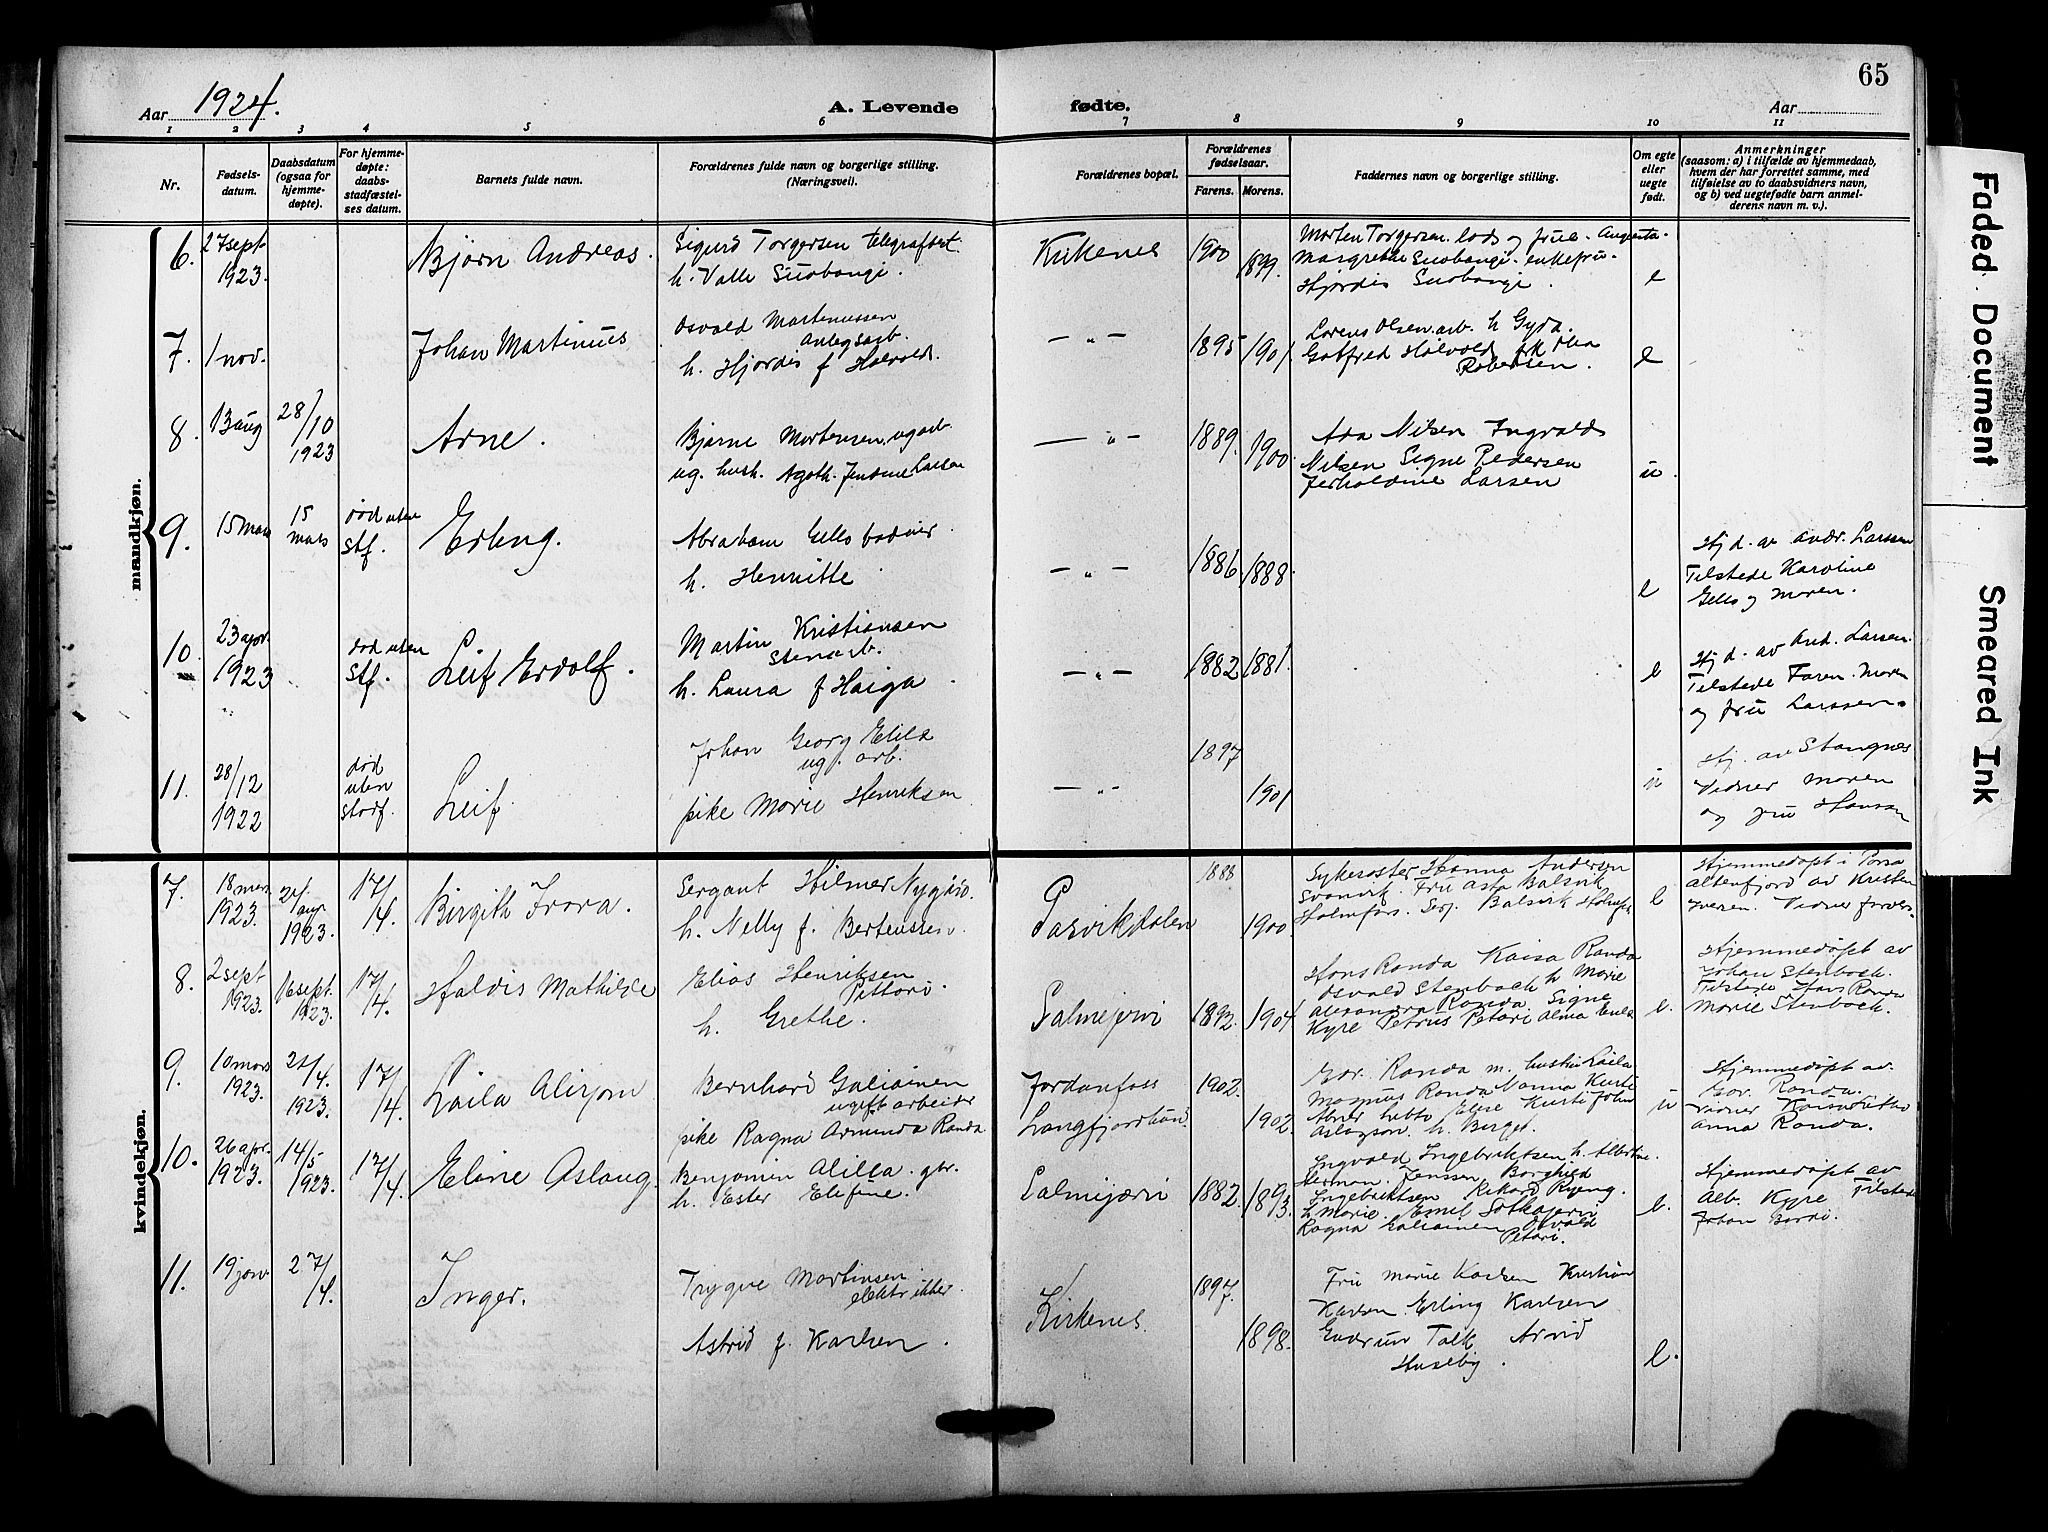 65
Aar 1924.
A. Levende fødte.
Aar
1 2 3 4 5 6 7 8 9 10 11
Nr.
Fødsels-
datum.
Daabsdatum
(ogsaa for
hjemme-
døpte).
For hjemme-
døpte:
daabs-
stadfæstel-
ses datum.
Barnets fulde navn.
Forældrenes fulde navn og borgerlige stilling.
(Næringsvei).
Forældrenes bopæl.
Forældrenes
fødselsaar.
Farens. Morens.
Faddernes navn og borgerlige stilling.
Om egte
eller
uegte
født.
Anmerkninger
(saasom: a) i tilfælde av hjemmedaab,
hvem der har forrettet samme, med
tilføielse av to daabsvidners navn,
og b) ved uegtefødte barn anmel-
derens navn m. v.).
mandkjøn.
6.
27 sept
1923.
Bjørn Andreas.
Sigurd Torgersen
h. Valle Suobangi.
Kirkenes
1900
1899.
Morten Torgersen. lods og frue. Augusta.
Margrethe Suobangi. enkefru.
Hjørdis Suobangi.
e
7.
1 nov.
Johan Martinus
Osvald Martenussen
Anlegsarb.
h. Hjørdis f Holvold.
— „ —
1895
1901
Lorens Olsen. arb. h Gyda.
Gotfred Holvold
Robertsen.
e
8.
13 aug
28/10
1923
Arne.
Bjarne Mortensen. ug arb.
ug. hush. Agoth. Larsen
— „ —
1889.
1900
Ada Nilsen Ingvald
Nilsen Signe Pedersen
Larsen
u
9.
15 mars
15
mars
død uten
stf.
Erling.
Abraham
h. Henritte
— „ —
1886
1888
e
Hj d. av andr. Larssen
Tilstede Karoline
og Moren.
10
23 apr.
1923
død uten
stf.
Leif Erdolf.
Martin Kristiansen
stenarb.
h. Laura f Haiga.
— „ —
1882
1881.
e
Hj d. av And. Larsen.
Tilstede Faren. Moren
og fru Larssen.
11.
28/12
1922
død
uten
stadf.
Leif.
Johan Georg
ug. arb.
pike Marie Henriksen
— „ —
1897
1901
u
Hj. av Stangnes
Vidner moren
og fru Hansen
kvindekjøn.
7.
18 mars
1923.
1923.
17/4.
Birgith
Sergant Hilmer Nygård.
h. Nelly f. Bertenssen.
Pasvikdalen
1888
1900
Sykesøster Hanna Andersen
Svanvik. Fru Asta Balsvik
Holmfos. Serj. Balsvik
e
Hjemmedøpt i
Altenfjord av Kristen
Iversen. Vidner
8.
2 sept
1923.
16 sept.
1923.
17/4.
Haldis Mathilde
Elias Henriksen
Pittari.
h. Grethe.
Salmejervi
1892.
1904
Hans Randa Kaisa Randa
Osvald Stenbach h Marie
Alexandra Randa Signe
Kyrø Petrus Petari Alma
e.
Hjemmedøpt av
Johan Stenback.
Tilstede Hans Randa
Marie Stenback.
9.
10 mars
1923.
22/4.
1923.
17/4.
Laila Alirjom
Bernhard Galiainen
ugift arbeider
pike Ragna Armunda Randa
Jordanfoss
Langfjordbund.
1902.
1902.
Edv. Randa m. hustru Laila
Magnus Randa Nanna Kurti
Abner Lebto Elise Kurti John
Aslagson. h. Birget.
u
Hjemmedøpt av.
Edv. Randa.
Vidner
Anna Randa.
10.
26 apr.
1923.
14/5
1923.
17/4.
Eline Aslaug.
Benjamin Alilla. gbr.
h. Ester Elefine.
Salmijærvi
1882.
1893.
Ingvald Ingebriktsen h. Albertine.
Herman. Jenssen Borghild
Ingebriktsen Rikard Ryeng.
h. Marie. Emil Sotkajervi
Ragna Galiainen Osvald
Petari.
e.
Hjemmedøpt av
Alb. Kyrø Tilstede
Johan Bordi.
11.
19 jan.
27/4.
Inger.
Trygve Martinsen
elektrikker.
Astrid f. Karlsen.
Kirkenes
1897.
1898.
Fru Marie Karlsen Kristian
Karlsen. Erling Karlsen
Gudrun Talk Arvid
Huseby.
e.
Faded Document
Smeared Ink